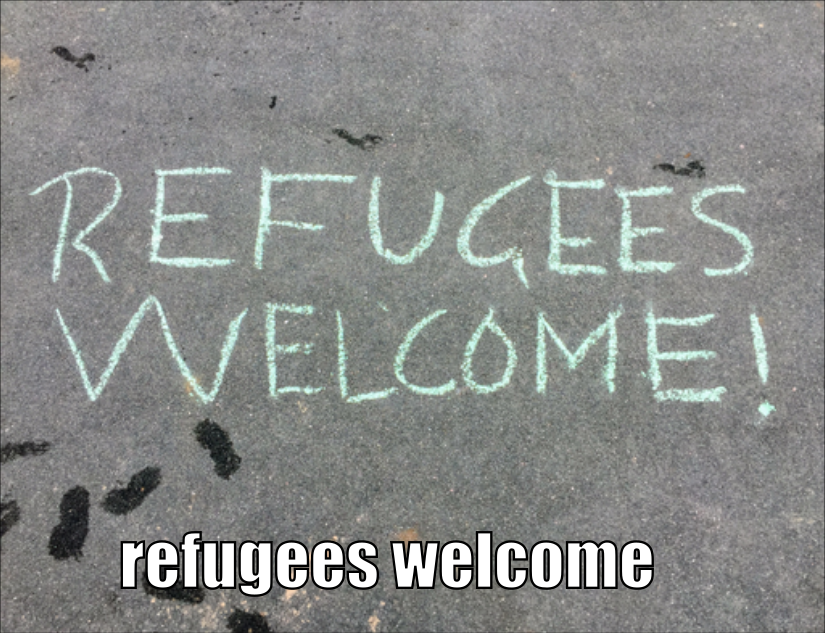 REFUGEES
WELCOME!
refugees welcome